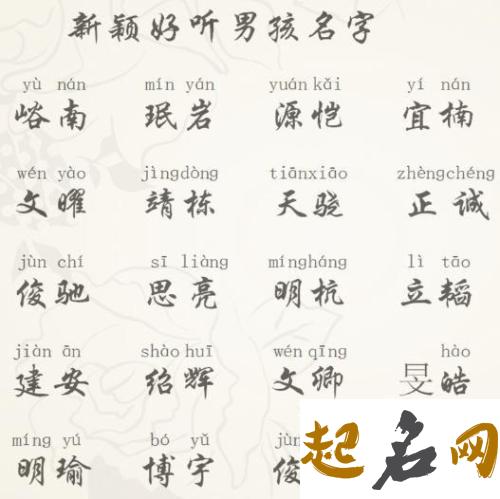 新颖好听男孩名字
yù nán mín yán yuán kǎi yí nán
峪南 珉岩 源恺 宜楠
wén yào jìng dòng tiān xiāo zhèng chéng
文曜 靖栋 天骁 正诚
jùn chí sī liàng míng háng lì tāo
俊驰 思亮 明杭 立韬
jiàn ān shào huī wén qīng hào
建安 绍辉 文卿 旻皓
míng yú bó yǔ jùn
明瑜 博宇 俊
起名网